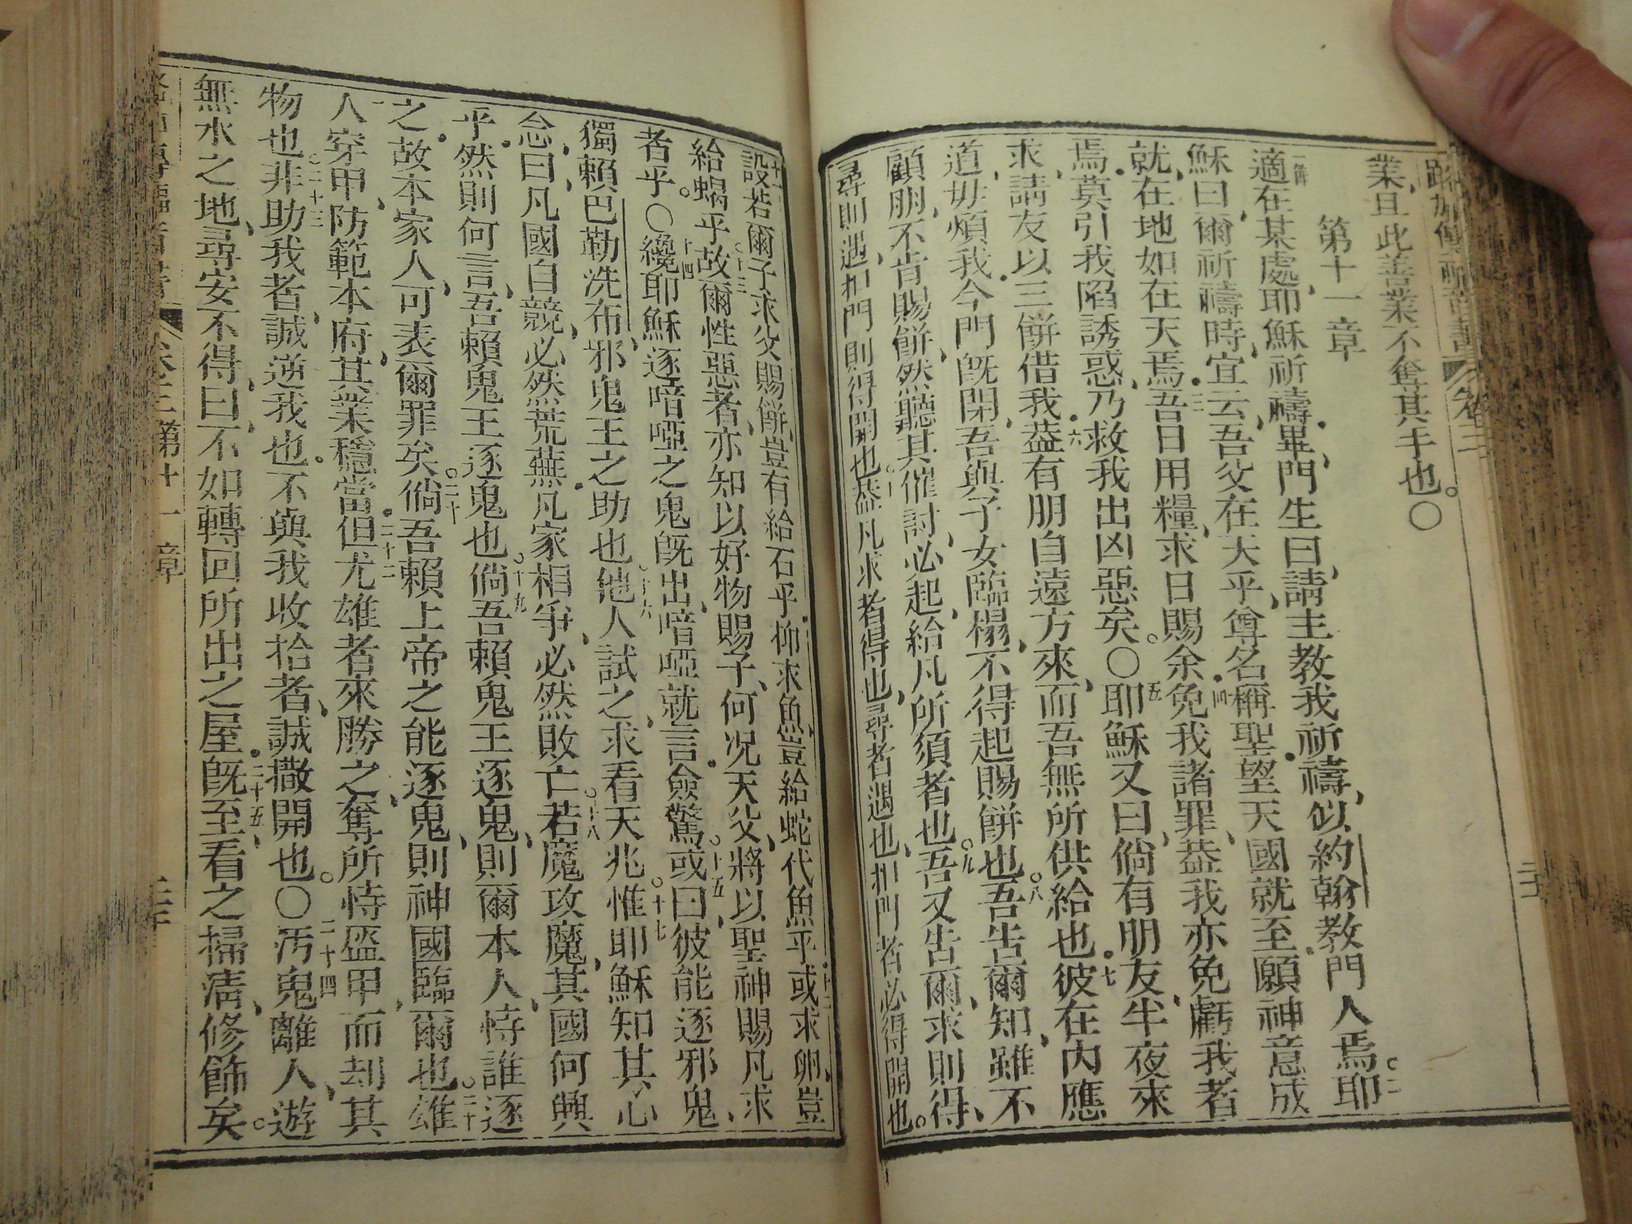 路加傳福音書 卷三
業且此善業不奪其手也。〇
第十一章
適在某處耶穌祈禱畢門生曰請主教我祈禱似約翰教門人焉二耶
穌曰爾祈禱時宜云吾父在天乎尊名稱聖望天國就至願神意成
就在地如在天焉三吾日用糧求日賜余四免我諸罪蓋我亦免虧我者
焉莫引我陷誘惑乃救我出凶惡矣〇五耶穌又曰倘有朋友半夜來
求請友以三餅借我六蓋有朋自遠方來而吾無所供給也七彼在內應
道毋煩我今門旣閉吾與子女臨榻不得起賜餅也八吾告爾知雖不
顧朋不肯賜餅然聽其催討必起給凡所須者也九吾又告爾求則得
尋則遇扣門則得開也十蓋凡求者得也尋者遇也扣門者必得開也。
十一設若爾子求父賜餅豈有給石乎抑求魚豈給蛇代魚乎十二或求卵豈
給蝎乎十三故爾性惡者亦知以好物賜子何况天父將以聖神賜凡求
者乎。〇十四纔耶穌逐喑啞之鬼旣出喑啞就言僉驚十五或曰彼能逐邪鬼
獨賴巴勒洗布邪鬼王之助也十六他人試之求看天兆十七惟耶穌知其心
念曰凡國自競必然荒蕪凡家相爭必然敗亡十八若魔攻魔其國何興
乎然則何言吾賴鬼王逐鬼也十九倘吾賴鬼王逐鬼則爾本人恃誰逐
之故本家人可表爾罪矣二十倘吾賴上帝之能逐鬼則神國臨爾也二十一雄
人穿甲防範本府其業穩當二十二但尤雄者來勝之奪所恃盔甲而刼其
物也二十三非助我者誠逆我也不與我收拾者誠撒開也〇二十四汚鬼離人遊
無水之地尋安不得曰不如轉回所出之屋二十五旣至看之掃清修飾矣
卷三 第十一章